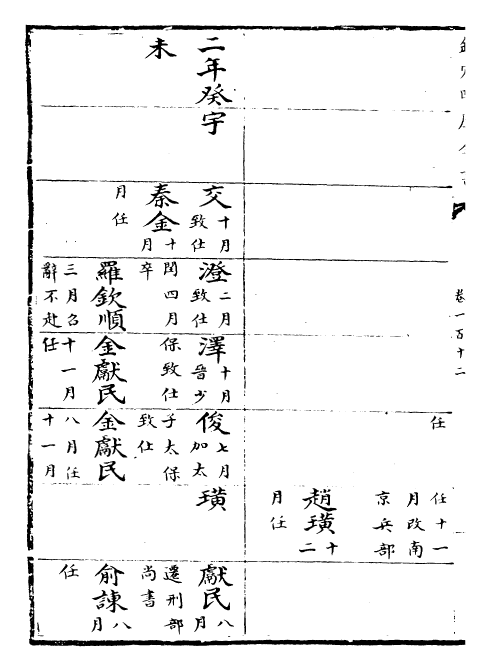 卷一百十二
任
任十一
月改南
京兵部
趙璜十二
月任
二年癸
未
宇
交
十月
致仕
秦金十月
月任
澄
二月
致仕
閏四月
卒
羅欽順
三月召
辭不赴
澤
十月
晉少
保致仕
金獻民
十一月
任
俊
七月
加太
子太保
致仕
金獻民
八月任
十一月
璜
獻民八月
遷刑部
尚書
俞諫八月
任